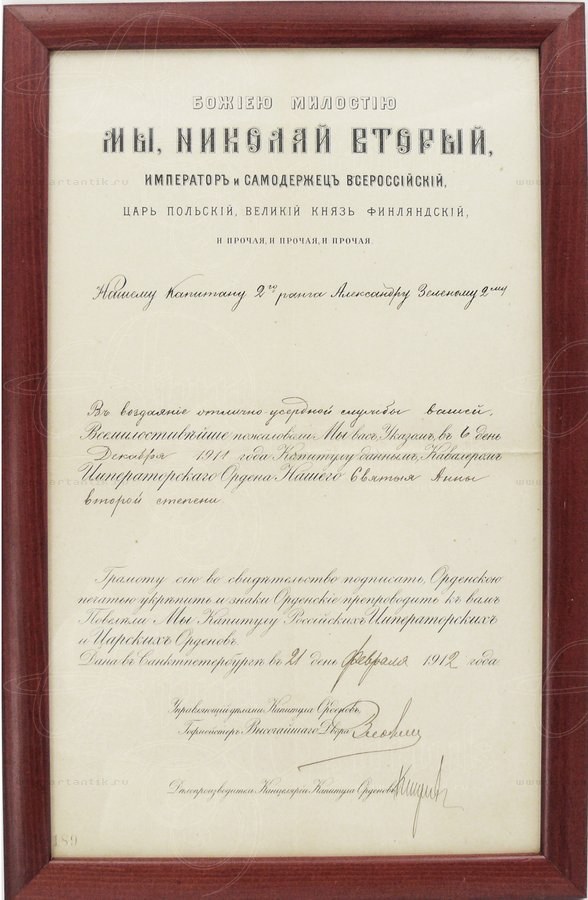 БОЖІЕЮ МИЛОСТІЮ
МЫ, НИКОЛАЙ ВТОРЫЙ,
ИМПЕРАТОРЪ и САМОДЕРЖЕЦЪ ВСЕРОССІЙСКІЙ,
ЦАРЬ ПОЛЬСКІЙ, ВЕЛИКІЙ КНЯЗЬ ФИНЛЯНДСКІЙ,
И ПРОЧАЯ, И ПРОЧАЯ, И ПРОЧАЯ.
Нашему Капитану 2го ранга Александру Зеленому 2му
Въ воздаяніе отлично-усердной службы вашей,
Всемилостивѣйше пожаловали Мы васъ Указомъ, въ 6 день
Декабря 1911 года Капитулу даннымъ, Кавалеромъ
Императорскаго Ордена Нашего Святыя Анны
второй степени
Грамоту сію во свидѣтельство подписать, Орденскою
печатью укрѣпить и знаки Орденскіе препроводить къ вамъ
Повелѣли Мы Капитулу Россійскихъ Императорскихъ
и Царскихъ Орденовъ.
Дана въ Санктпетербургѣ въ 21 день февраля 1912 года
Управляющій дѣлами Капитула Орденовъ,
Гофмейстеръ Высочайшаго Двора
Дѣлопроизводитель Канцеляріи Капитула Орденовъ
189